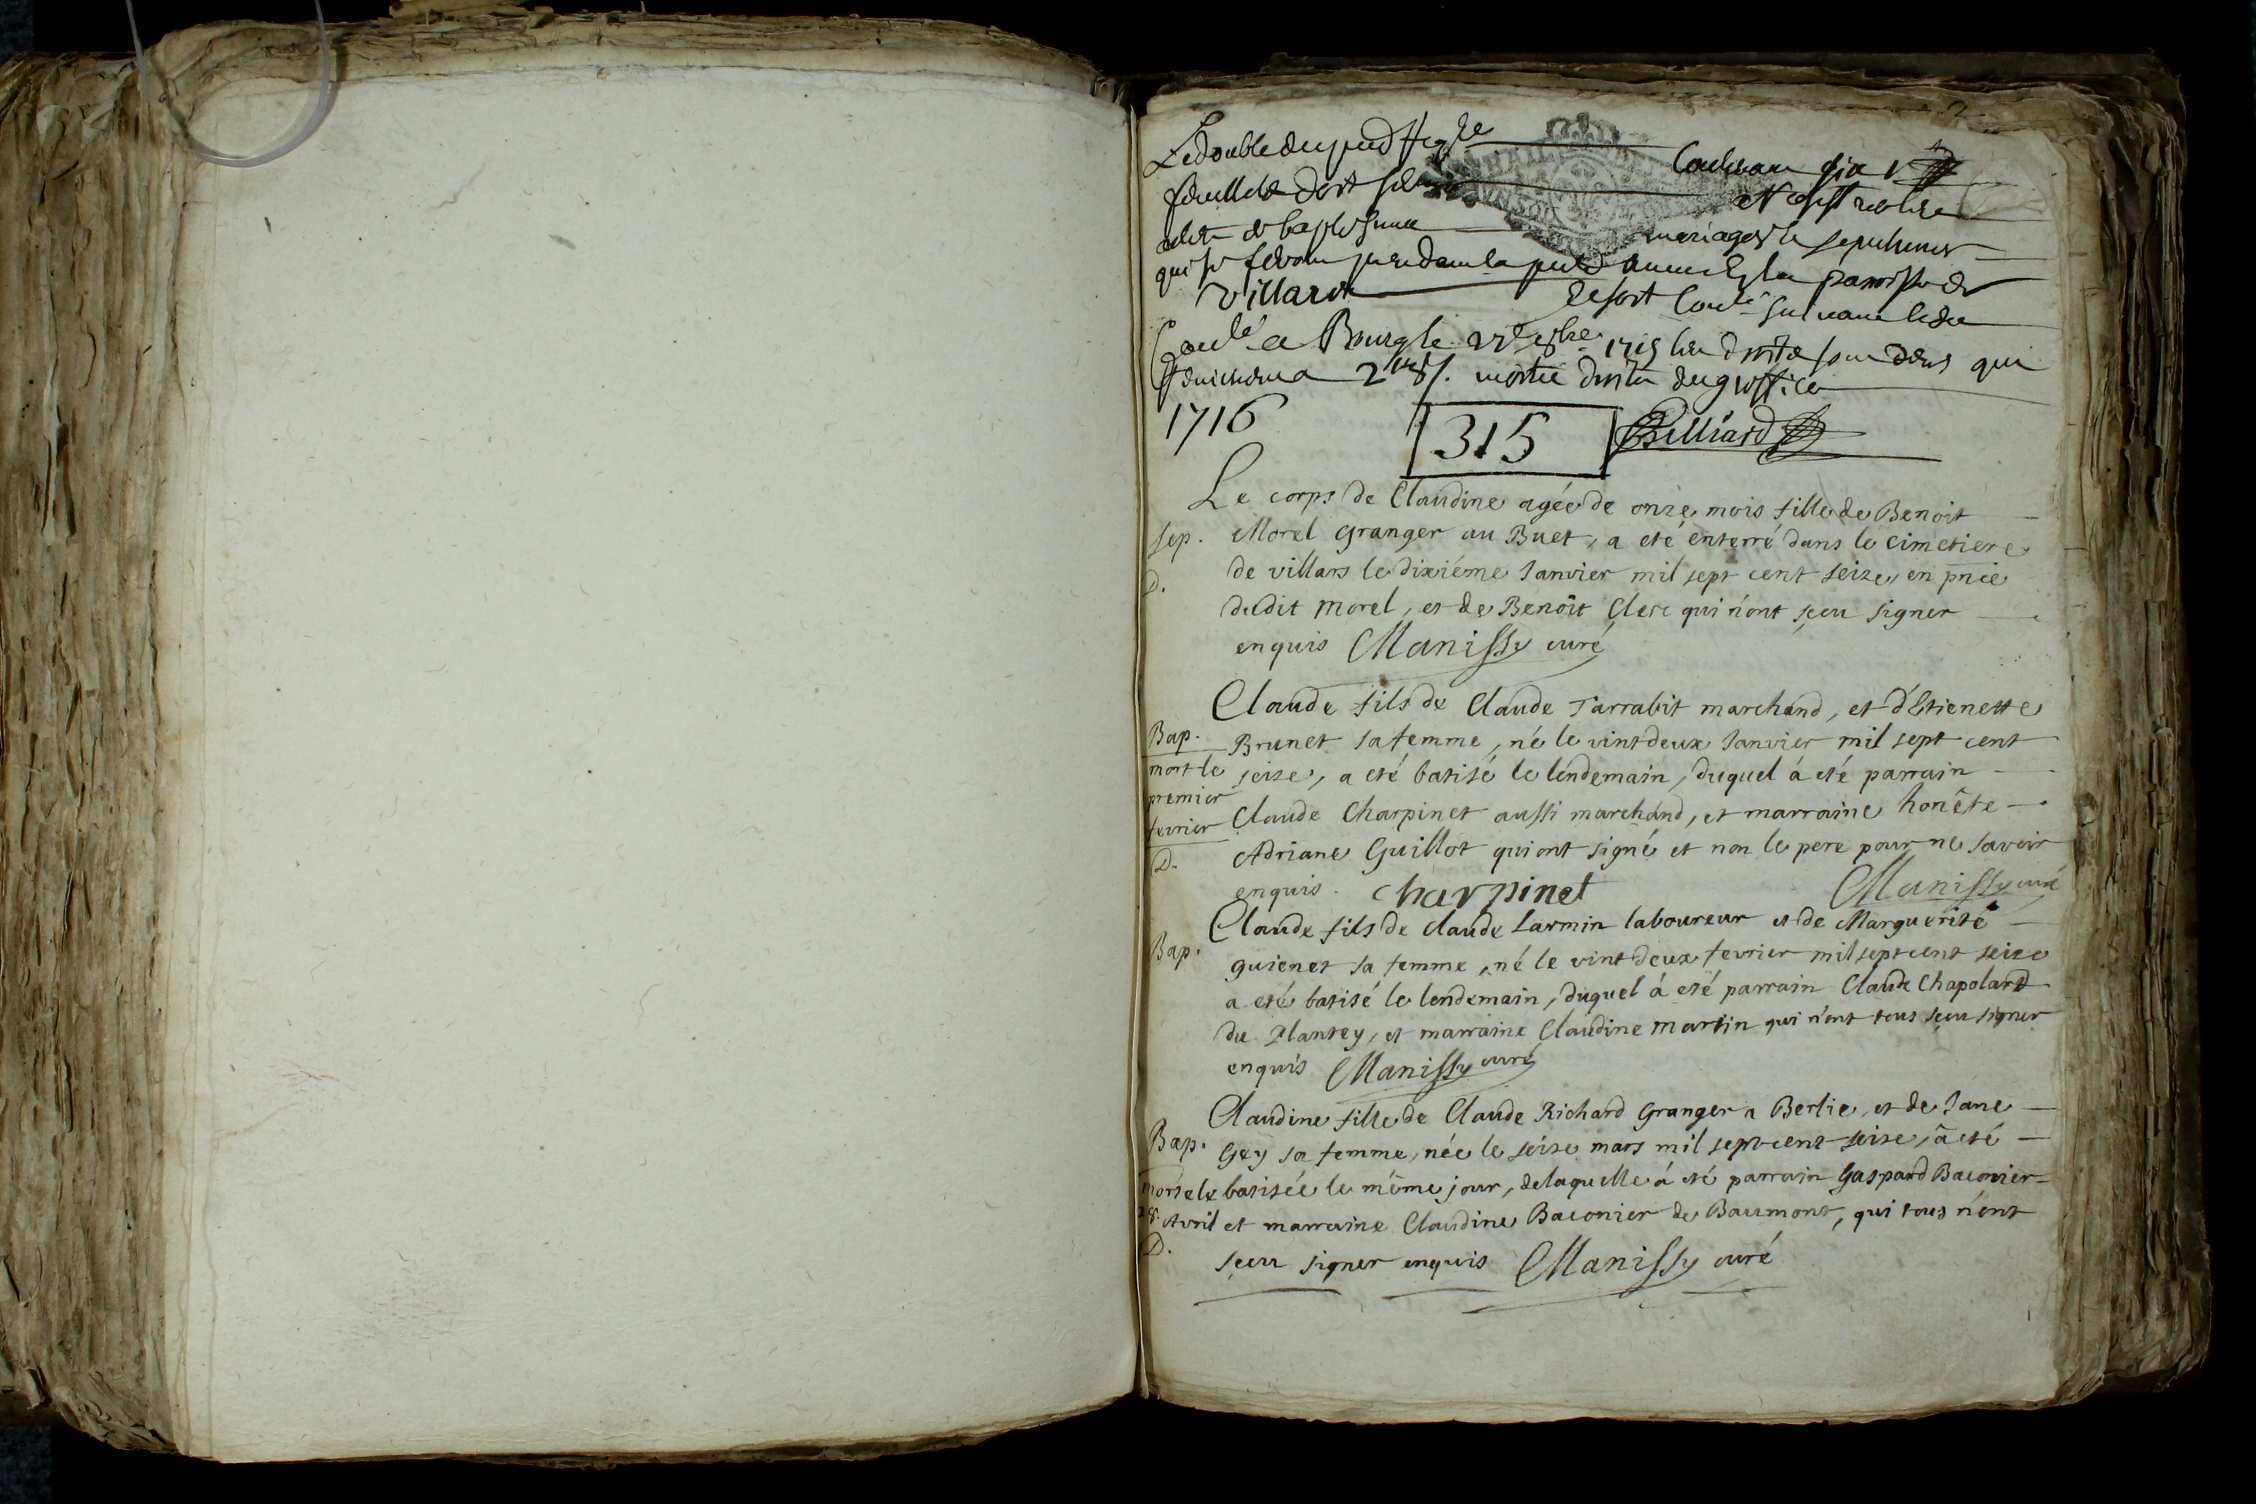 2
Le double du pnt Regre Contenant six
feuillets doit servir et estre
actes de baptesme mariages & sepultures
qui se feront pendant la pnte année En la paroisse de
Villars
a Bourg le 1715 les droits qui
2 moitie droits du greffier
1716
315 Billiard
Le corps de Claudine agée de onze mois fille de Benoit
Sep. Morel granger au Buet, a eté enterré dans le cimetiere
D. de villars le dixiéme Janvier mil sept cent seize, en pnce
dudit Morel, et de Benoît Clerc qui n'ont sçeu signer
enquis Manissy curé
Claude fils de Claude Tarrabit marchand, et d'Etienette
Bap. Brunet sa femme, né le vint deux Janvier mil sept cent
mort le seize, a eté batisé le lendemain, duquel á eté parrain
premier Claude Charpinet aussi marchand, et marraine honête
fevrier
D. Adriane Guillot qui ont signé et non le pere pour ne savoir
enquis. Charpinet Manissy curé
Claude fils de Claude Larmin laboureur et de Marguerite
Bap. guienet sa femme, né le vint deux fevrier mil sept cent seize
a eté batisé le lendemain, duquel á eté parrain Claude Chapolard
du Plantey, et marraine Claudine Martin qui n'ont tous sçeu signer
enquis Manissy curé
Claudine fille de Claude Richard Granger a Berlie, et de Jane
Bap. Gey sa femme, née le seize mars mil sept cent seize, â eté
morte le batisée le même jour, de laquelle á eté parrain Gaspard Baconier
28. Avril et marraine Claudine Baconier de Baumont, qui tous n'ont
D. sçeu signer enquis Manissy curé